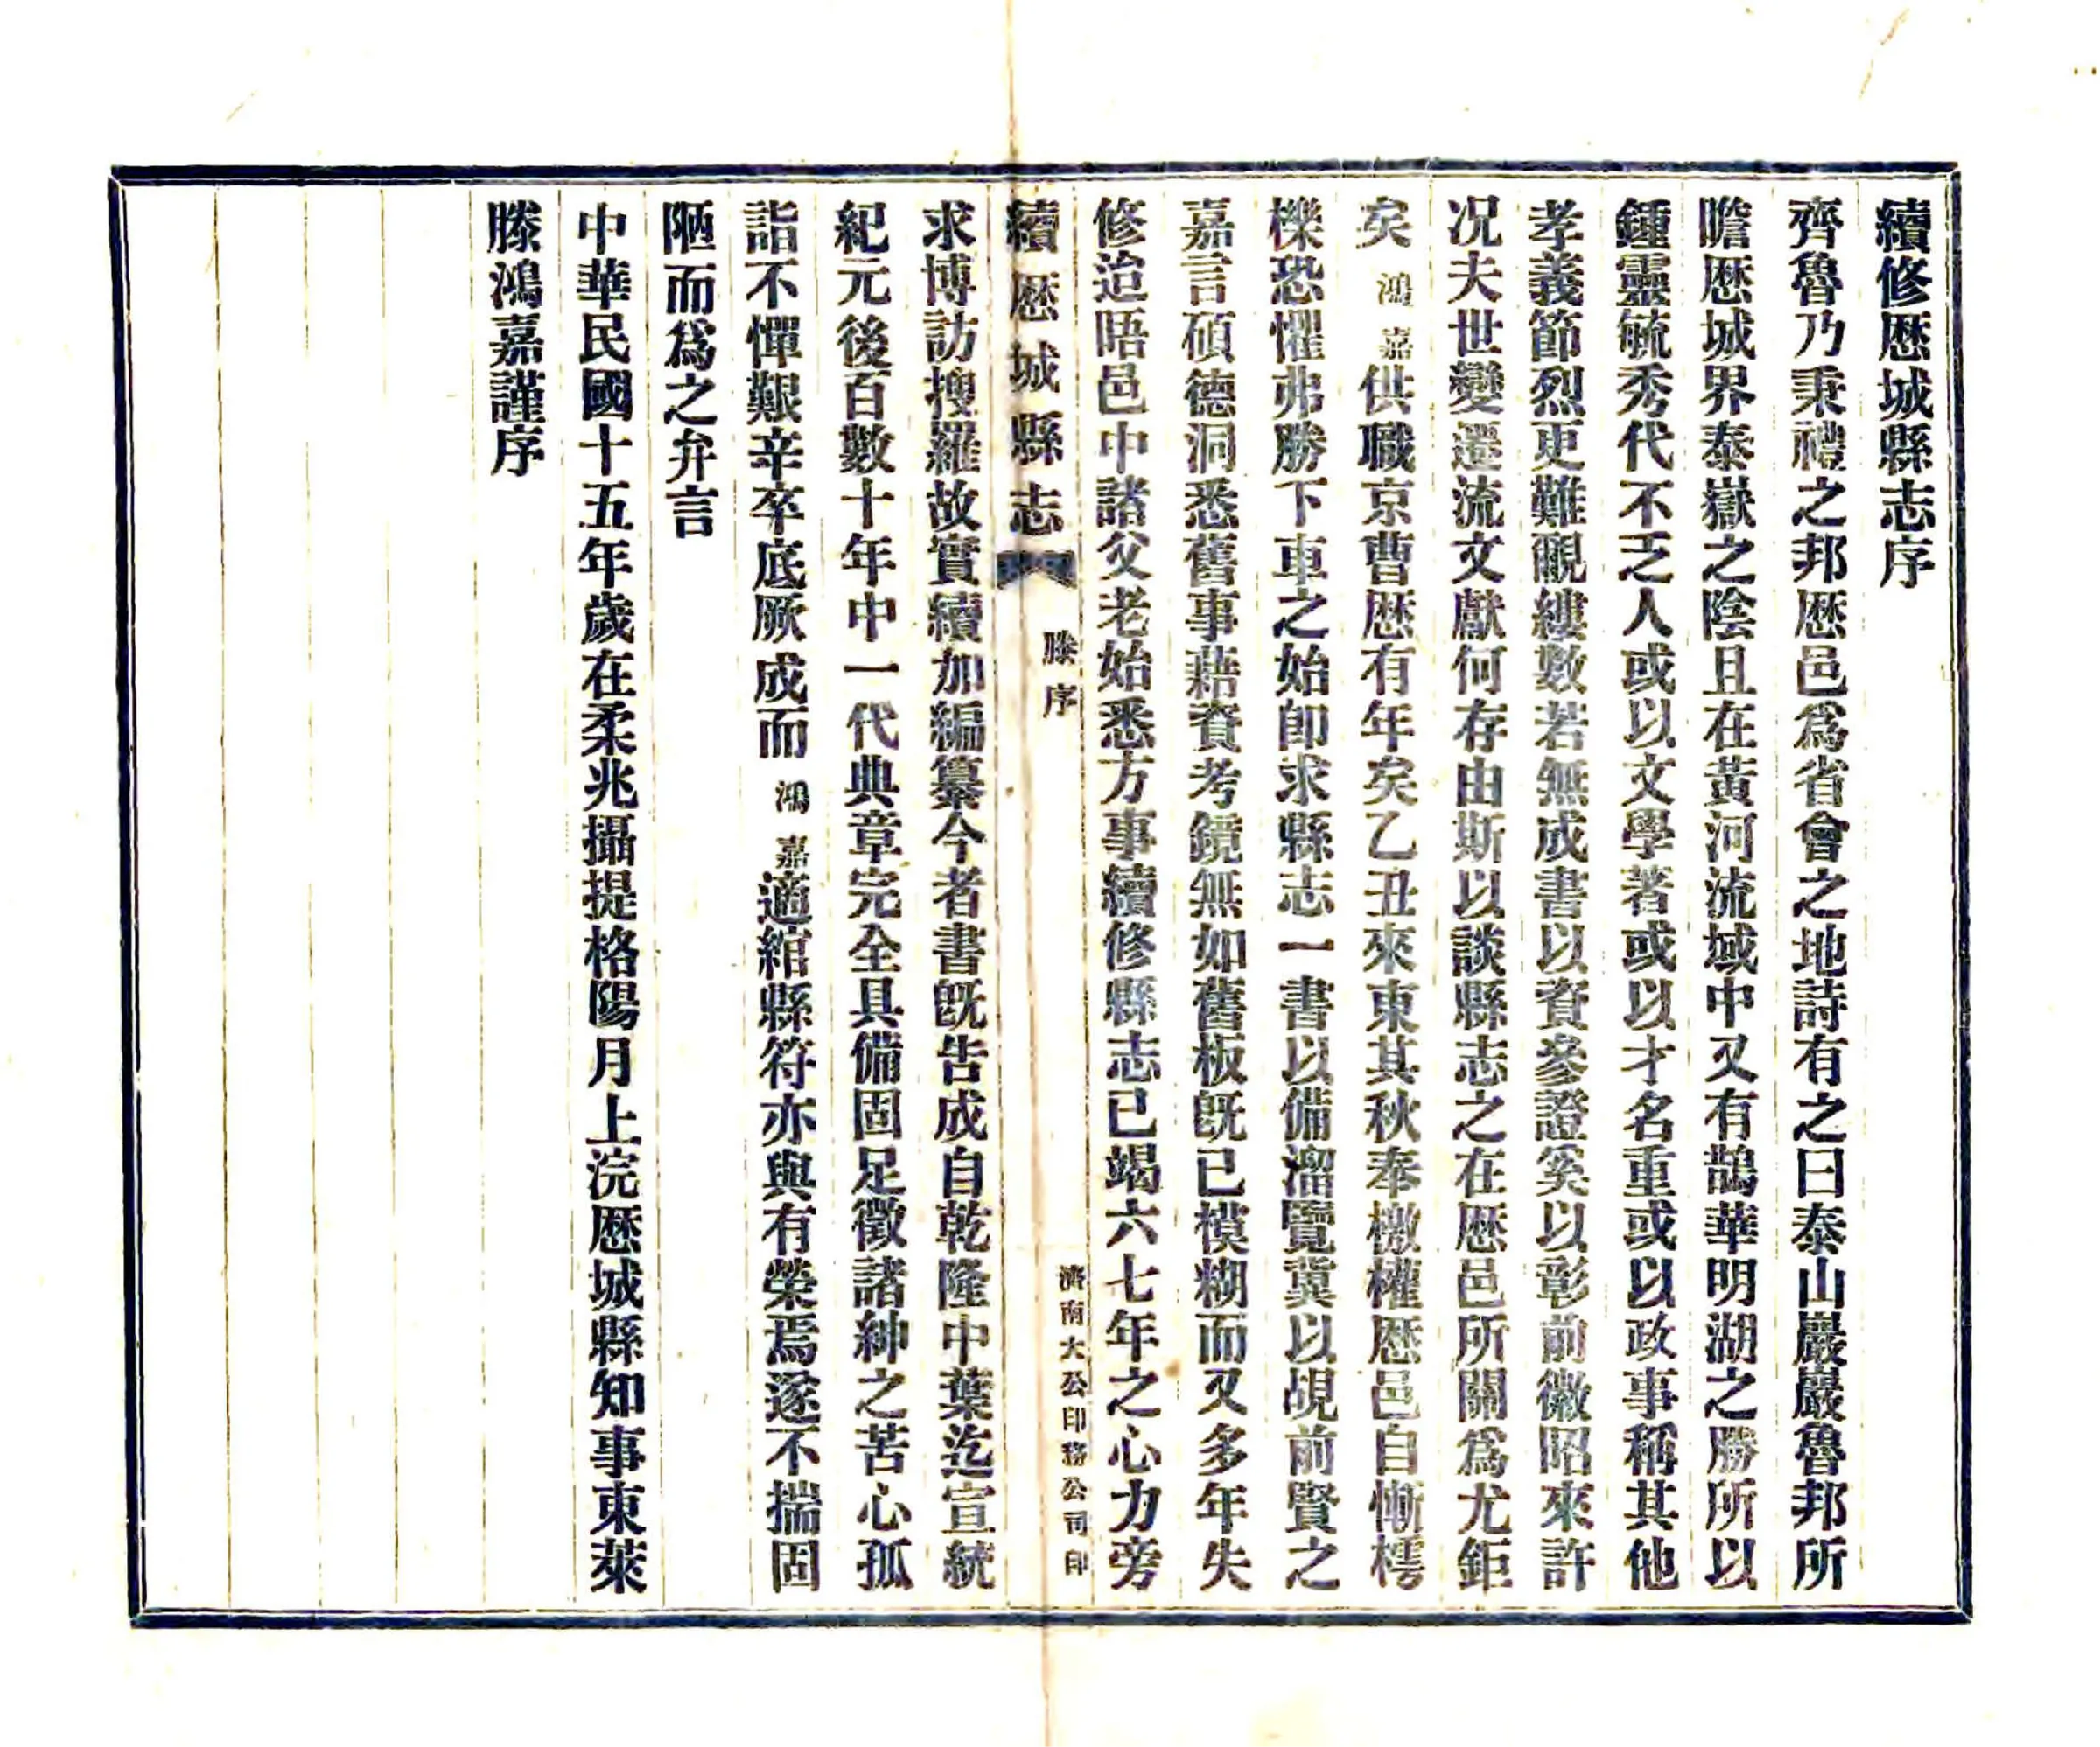 續修歷城縣志序
齊魯乃秉禮之邦歷邑爲省會之地詩有之曰泰山巖巖魯邦所
瞻歷城界泰嶽之陰且在黃河流域中又有鵲華明湖之勝所以
鍾靈毓秀代不乏人或以文學著或以才名重或以政事稱其他
孝義節烈更難覼縷數若無成書以資參證奚以彰前徽昭來許
况夫世變遷流文獻何存由斯以談縣志之在歷邑所關爲尤鉅
矣鴻嘉供職京曹歷有年矣乙丑來東其秋奉檄權歷邑自慚樗
櫟恐懼弗勝下車之始卽求縣志一書以備瀏覽冀以覘前賢之
嘉言碩德洞悉舊事藉資考鏡無如舊板旣已模糊而又多年失
修迨晤邑中諸父老始悉方事續修縣志已竭六七年之心力旁
續歷城縣志
滕序
濟南大公印務公司印
求博訪搜羅故實續加編纂今者書旣告成自乾隆中葉迄宣統
紀元後百數十年中一代典章完全具備固足徵諸紳之苦心孤
詣不憚艱辛卒底厥成而鴻嘉適綰縣符亦與有榮焉遂不揣固
陋而爲之弁言
中華民國十五年歲在柔兆攝提格陽月上浣歷城縣知事東萊
滕鴻嘉謹序